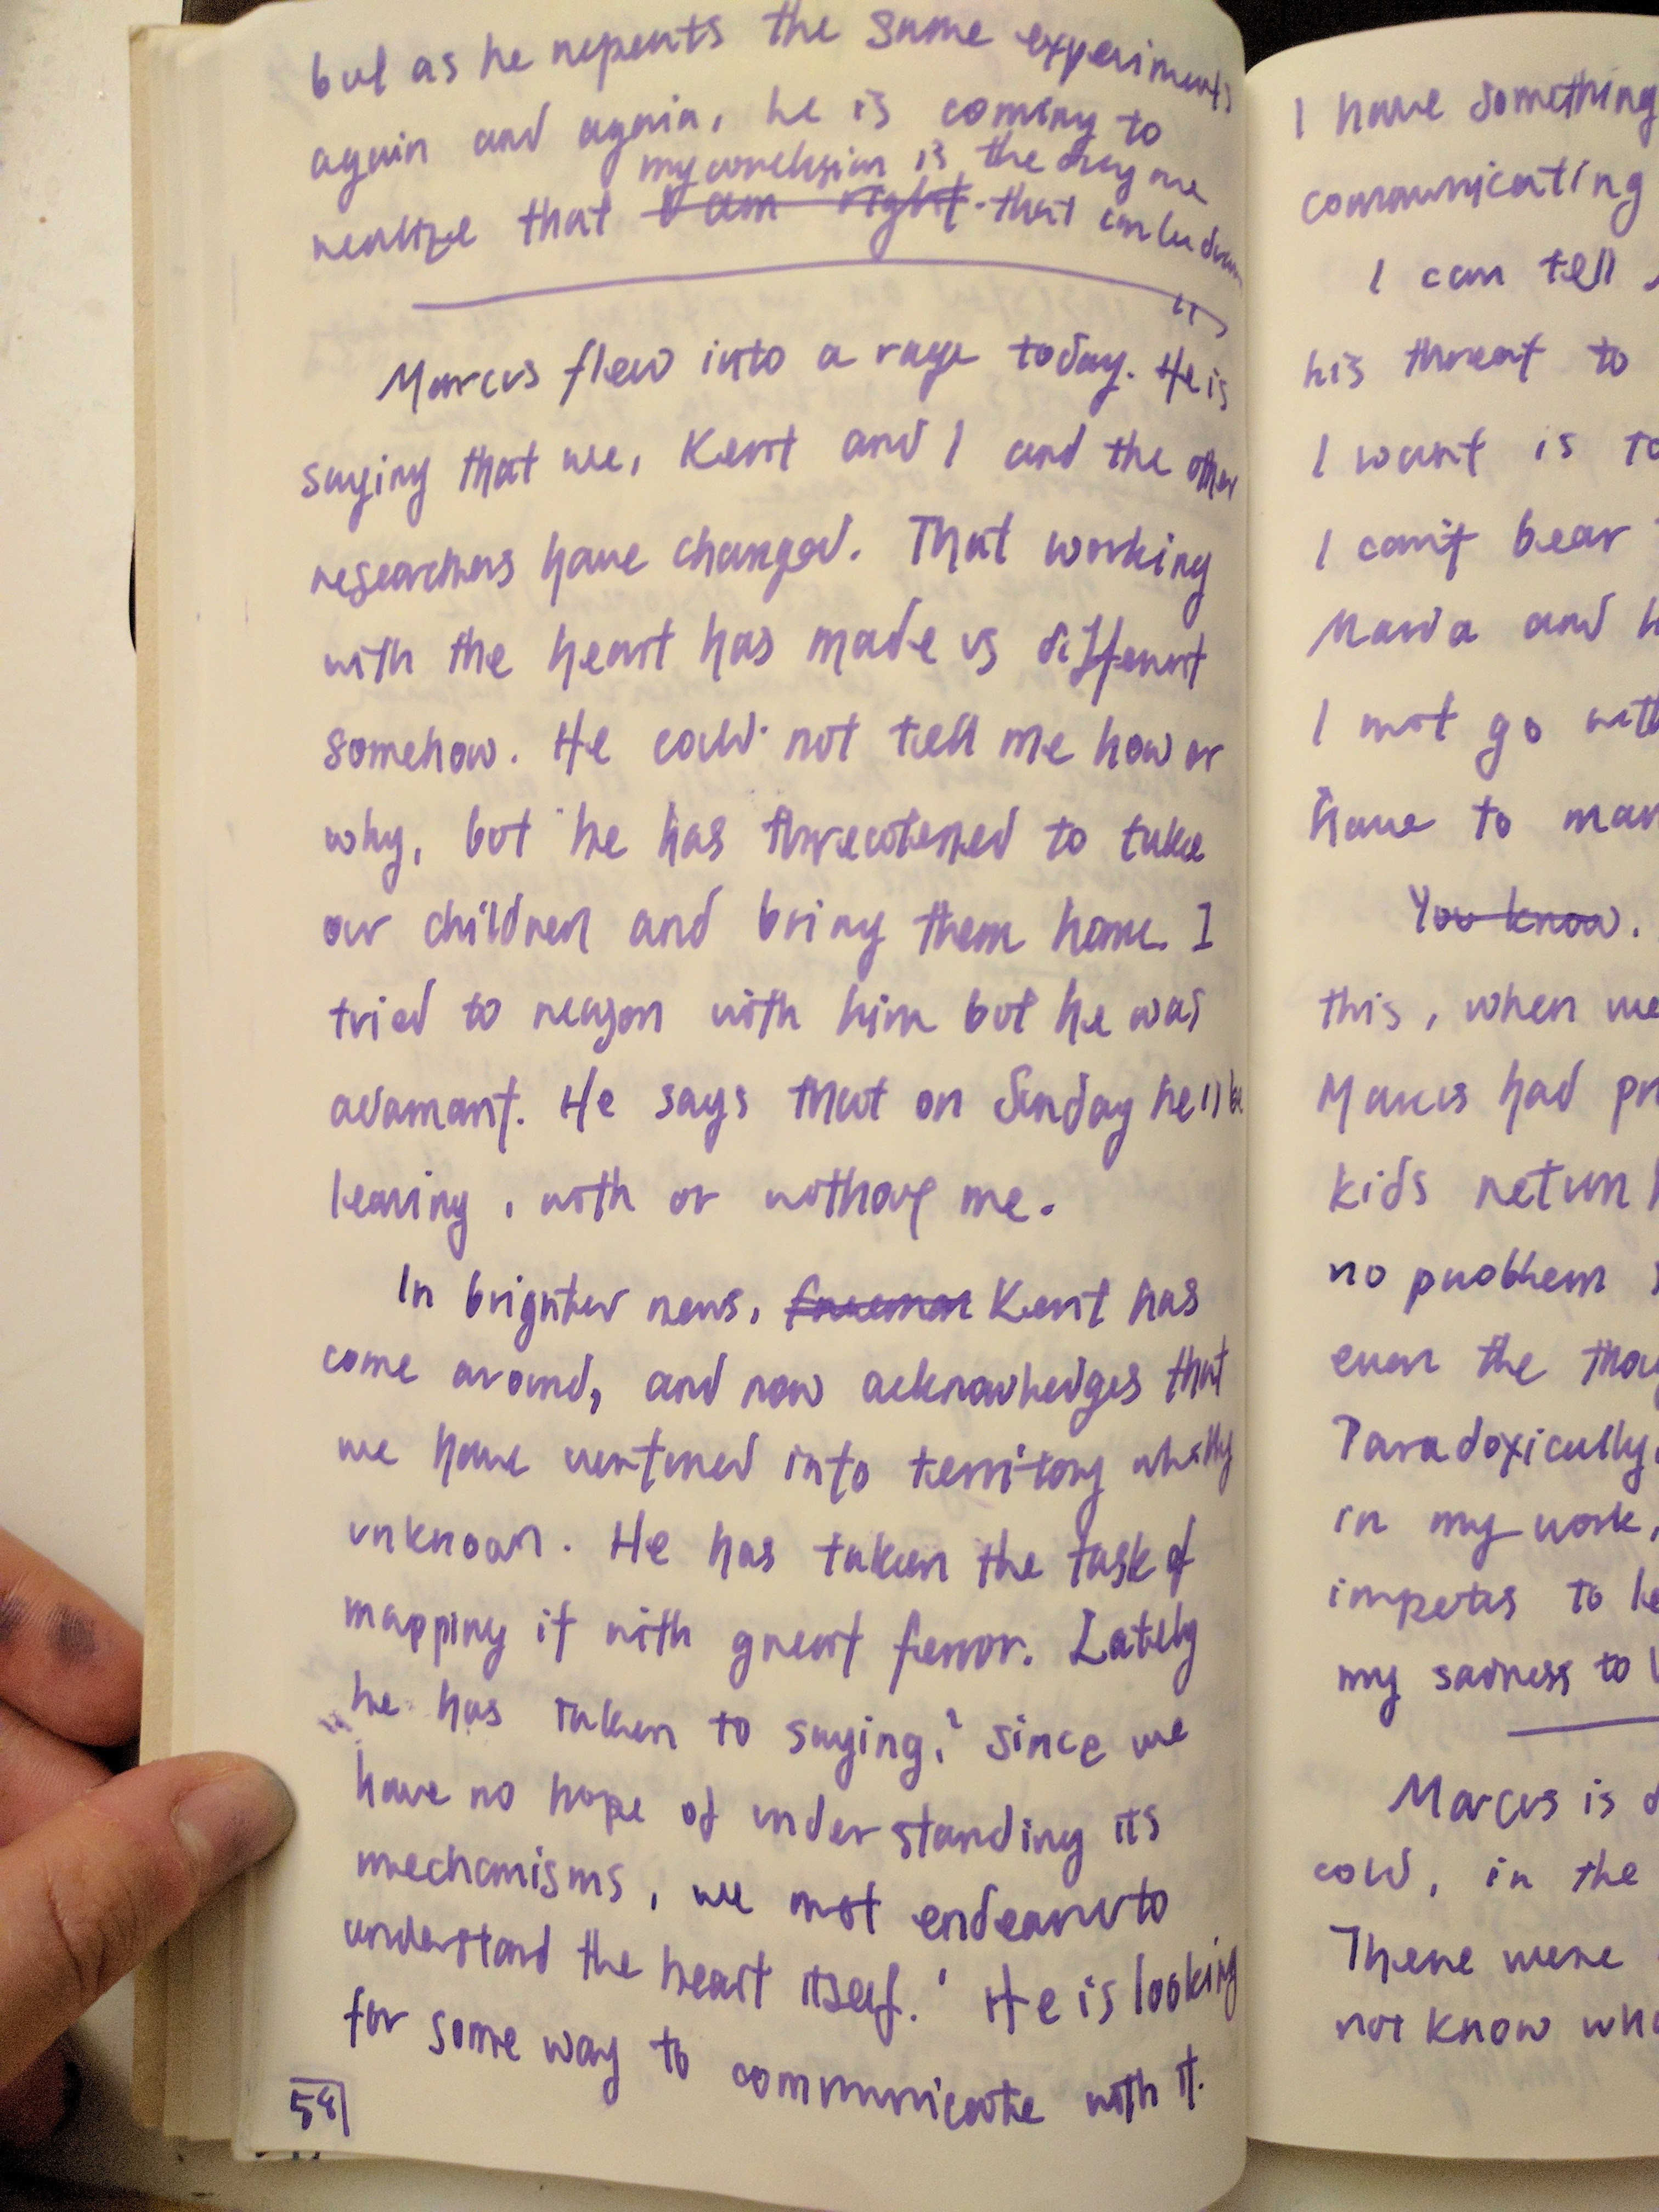 but as he repeats the same experiments
again and again, he is coming to
my conclusion is the only one
realize that I am right. that includes
it
Marcus flew into a rage today. He is
saying that we, Kent and I and the other
researchers have changed. That working
with the heart has made us different
somehow. He could not tell me how or
why, but he has threatened to take
our children and bring them home. I
tried to reason with him but he was
adamant. He says that on Sunday he'll be
leaving, with or without me.
In brighter news, Kent has
come around, and now acknowledges that
we have ventured into territory wholly
unknown. He has taken the task of
mapping it with great fervor. Lately
he has taken to saying, 'since we
have no hope of understanding its
mechanisms, we must endeavor to
understand the heart itself.' He is looking
for some way to communicate with it.
I have something
communicating
I can tell
his threat to
I want is to
I can't bear
Maria and h
I must go with
have to mar
You know.
this, when we
Marcus had pr
kids return h
no problem s
even the thou
Paradoxically,
in my work,
impetus to ke
my sadness to
Marcus is d
cold, in the
There were
not know who